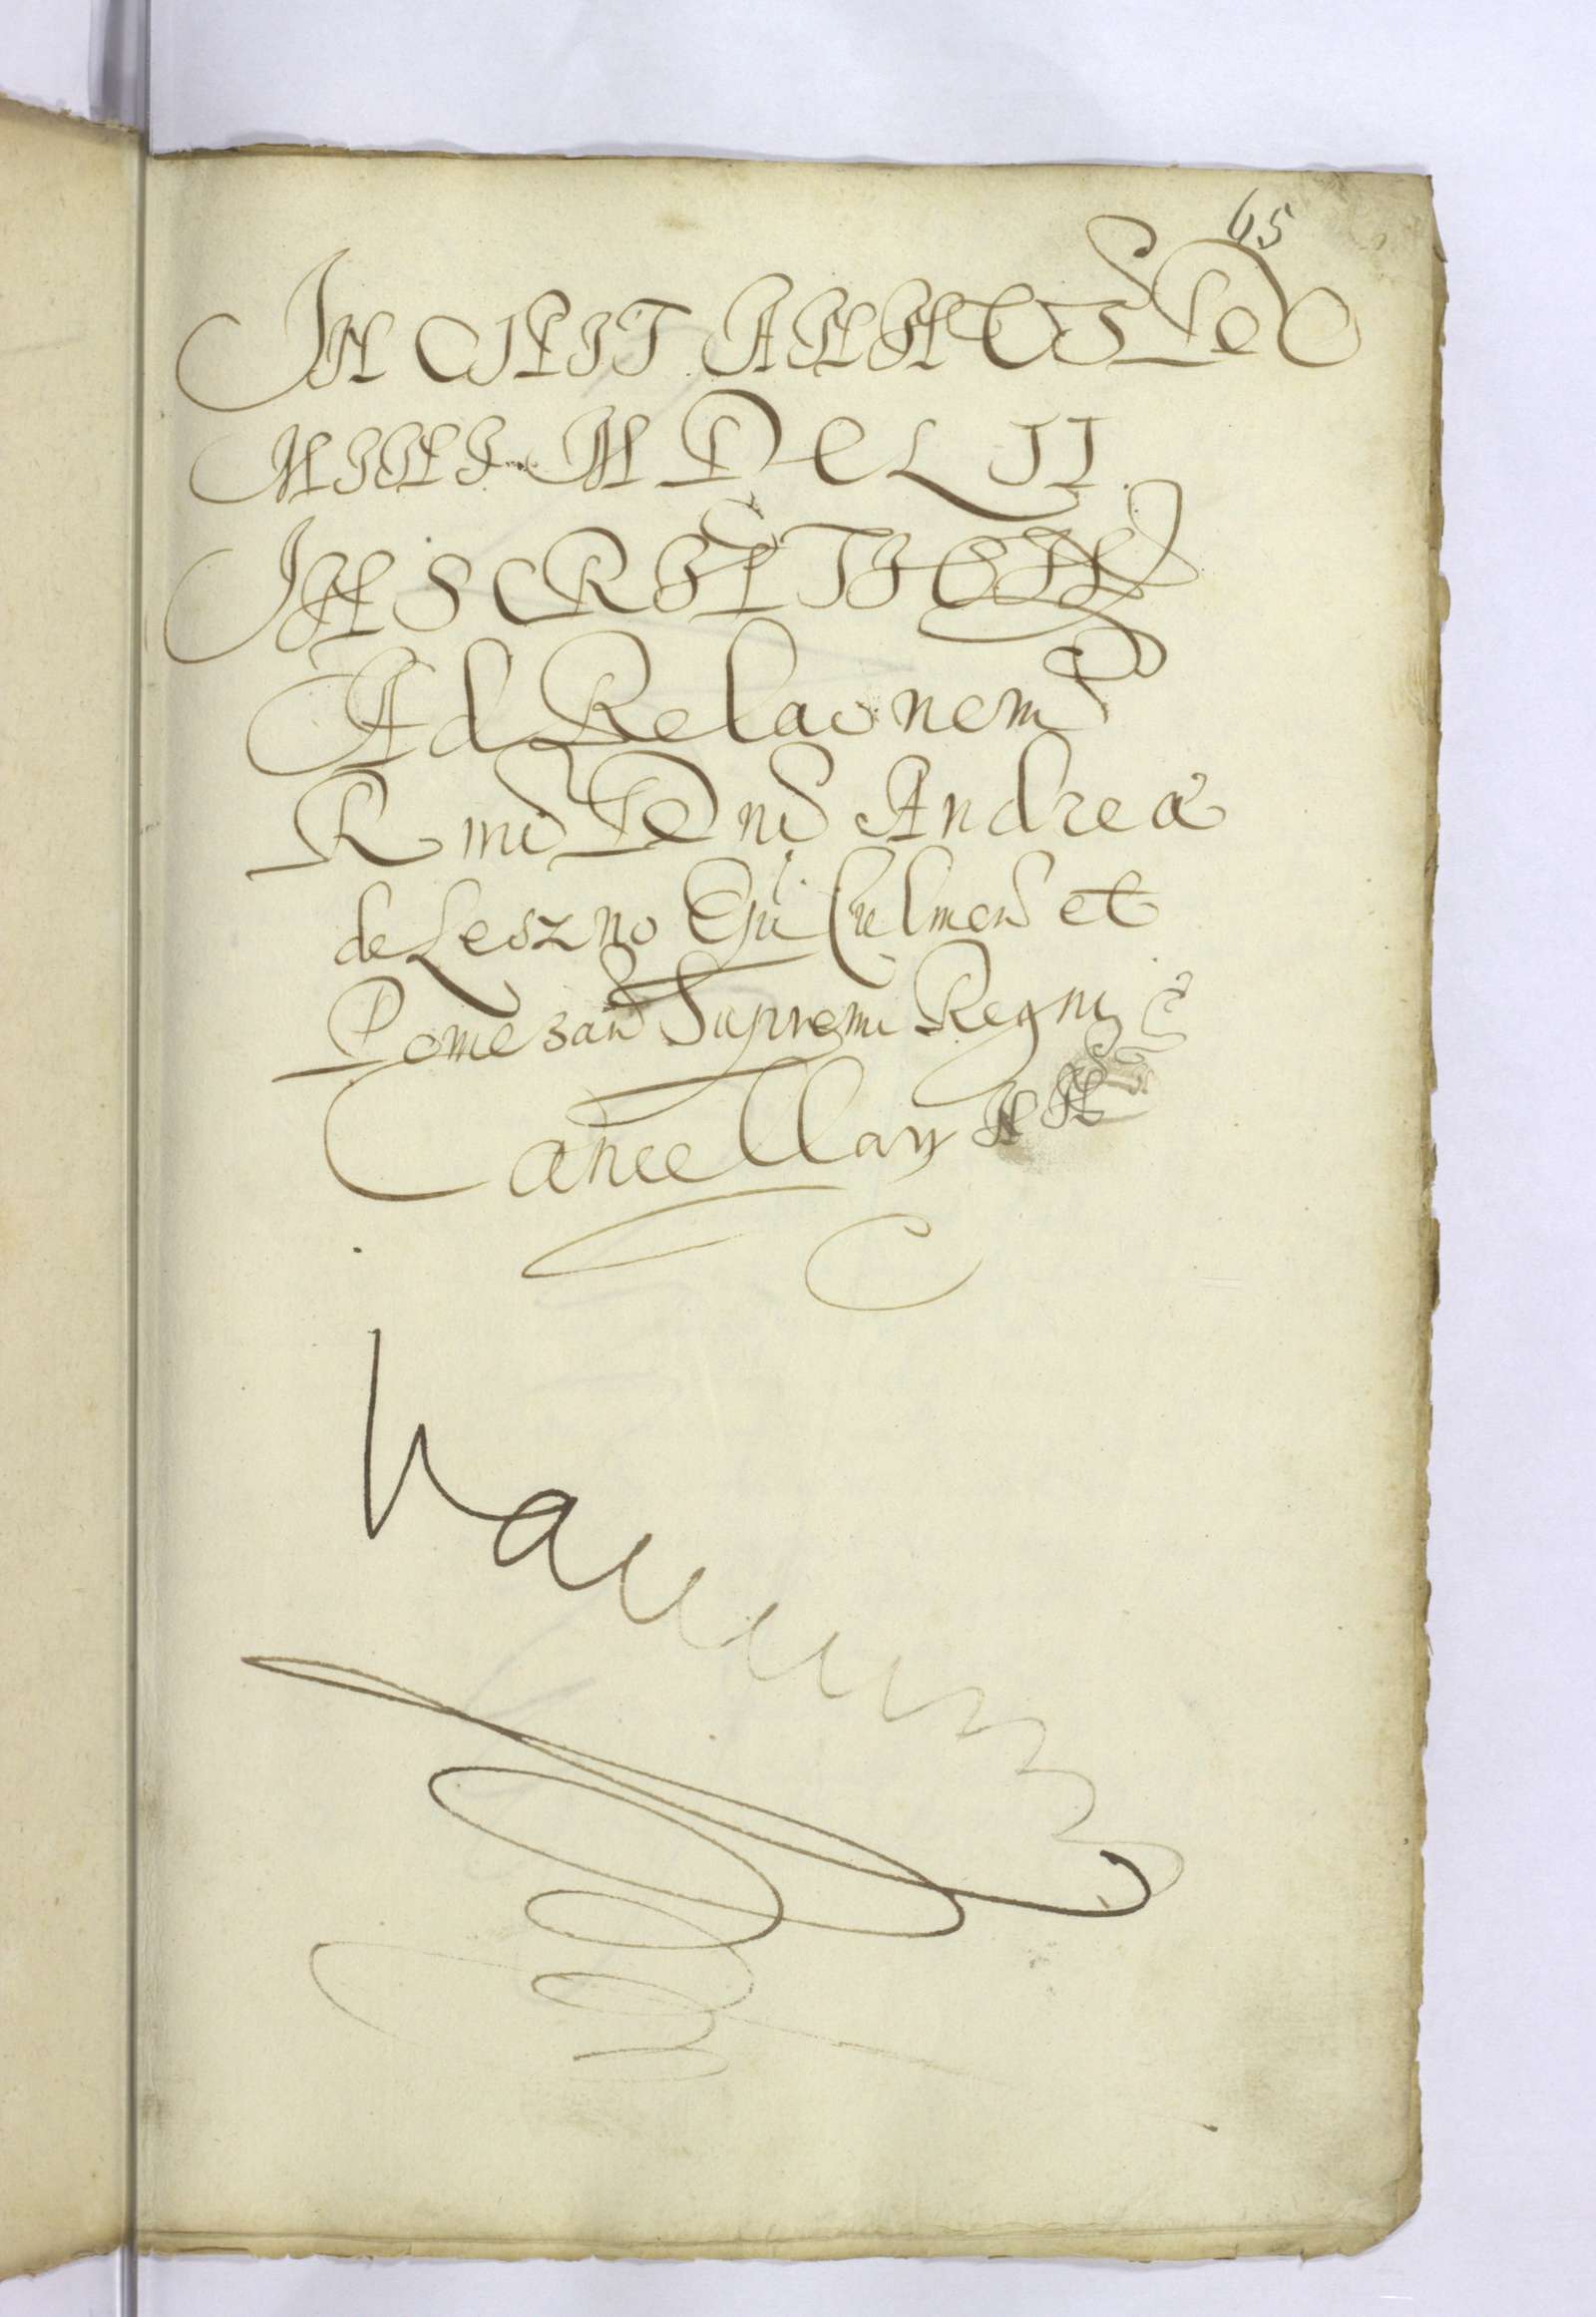 65
INCIPIT ANNUS DO
MINI MDCLII
INSCRIPTION
Ad Relaōnem
Rmi Dni Andreæ
de Leszno Epi Culmen et
Pomesan Supremi Regni
Cancellarÿ